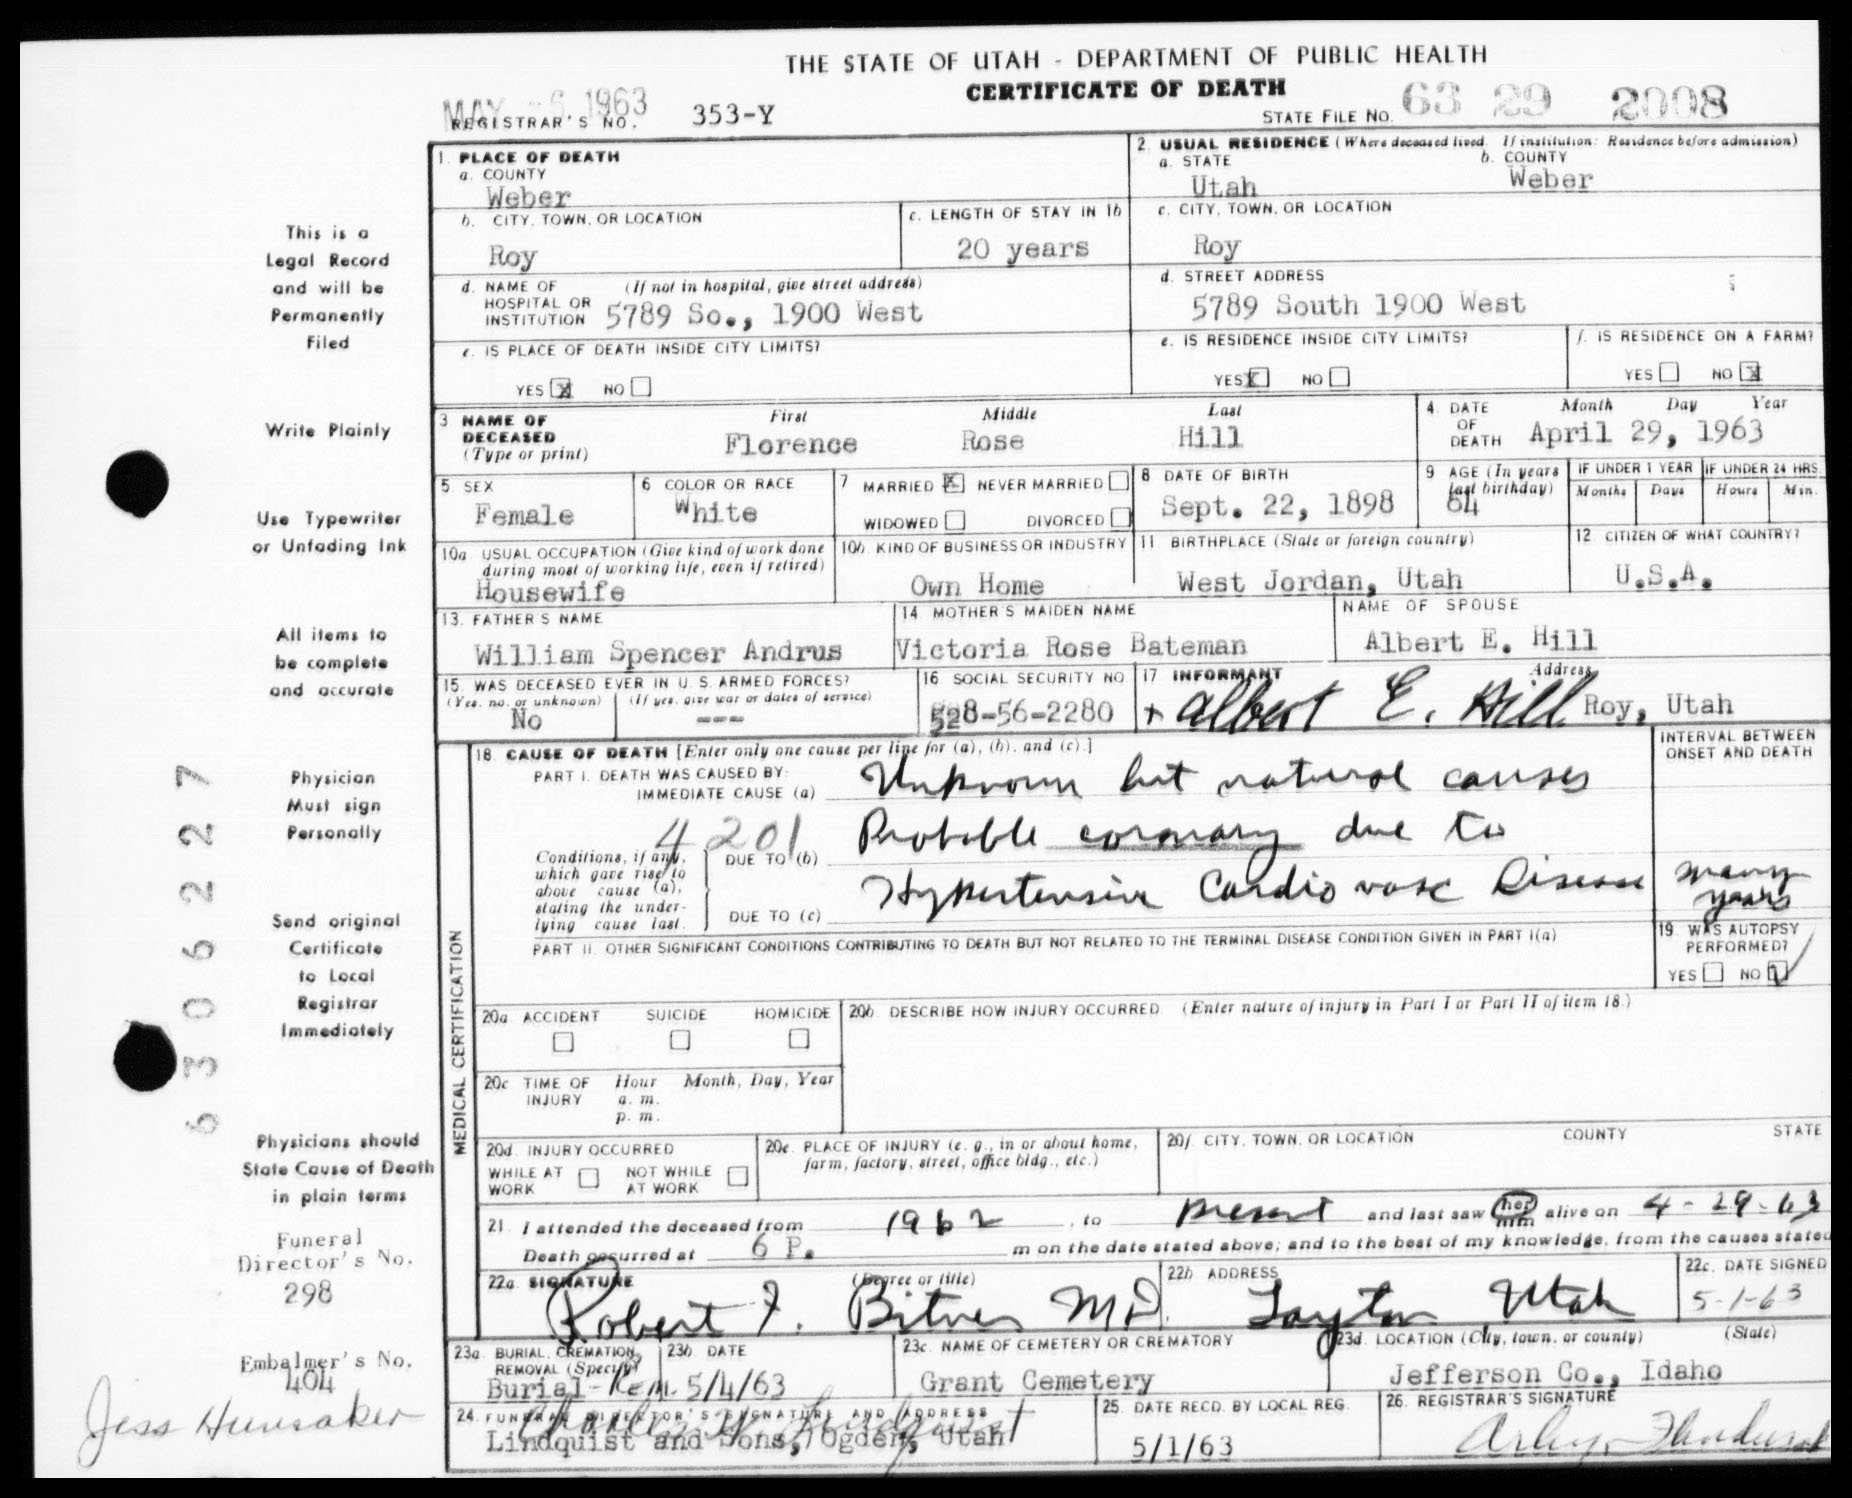 THE STATE OF UTAH - DEPARTMENT OF PUBLIC HEALTH
CERTIFICATE OF DEATH
MAY -6 1963
REGISTRAR'S NO. 353-Y
STATE FILE NO. 63 29 2008
1. PLACE OF DEATH
a. COUNTY
Weber
2. USUAL RESIDENCE (Where deceased lived. If institution: Residence before admission)
a. STATE
Utah
b. COUNTY
Weber
b. CITY, TOWN, OR LOCATION
Roy
c. LENGTH OF STAY IN 1b
20 years
c. CITY, TOWN, OR LOCATION
Roy
d. NAME OF HOSPITAL OR INSTITUTION (If not in hospital, give street address)
5789 So., 1900 West
d. STREET ADDRESS
5789 South 1900 West
e. IS PLACE OF DEATH INSIDE CITY LIMITS?
YES X NO
e. IS RESIDENCE INSIDE CITY LIMITS?
YES X NO
f. IS RESIDENCE ON A FARM?
YES NO X
3 NAME OF DECEASED (Type or print)
First Middle Last
Florence Rose Hill
4. DATE OF DEATH
Month Day Year
April 29, 1963
5. SEX
Female
6 COLOR OR RACE
White
7 MARRIED X NEVER MARRIED
WIDOWED DIVORCED
8 DATE OF BIRTH
Sept. 22, 1898
9 AGE (In years last birthday)
64
IF UNDER 1 YEAR
Months Days
IF UNDER 24 HRS.
Hours Min.
10a. USUAL OCCUPATION (Give kind of work done during most of working life, even if retired)
Housewife
10b. KIND OF BUSINESS OR INDUSTRY
Own Home
11 BIRTHPLACE (State or foreign country)
West Jordan, Utah
12 CITIZEN OF WHAT COUNTRY?
U.S.A.
13. FATHER'S NAME
William Spencer Andrus
14 MOTHER'S MAIDEN NAME
Victoria Rose Bateman
NAME OF SPOUSE
Albert E. Hill
15. WAS DECEASED EVER IN U. S. ARMED FORCES?
(Yes, no, or unknown) (If yes, give war or dates of service)
No ---
16 SOCIAL SECURITY NO.
528-56-2280
17 INFORMANT Address
+ Albert E. Hill Roy, Utah
18. CAUSE OF DEATH [Enter only one cause per line for (a), (b), and (c).]
INTERVAL BETWEEN ONSET AND DEATH
PART I. DEATH WAS CAUSED BY:
IMMEDIATE CAUSE (a) Unknown but natural causes
4201
Conditions, if any, which gave rise to above cause (a), stating the underlying cause last.
DUE TO (b) Probable coronary due to
DUE TO (c) Hypertensive Cardio vasc Disease many years
PART II. OTHER SIGNIFICANT CONDITIONS CONTRIBUTING TO DEATH BUT NOT RELATED TO THE TERMINAL DISEASE CONDITION GIVEN IN PART I(a)
19. WAS AUTOPSY PERFORMED?
YES NO ✓
MEDICAL CERTIFICATION
20a ACCIDENT SUICIDE HOMICIDE
20b. DESCRIBE HOW INJURY OCCURRED (Enter nature of injury in Part I or Part II of item 18.)
20c TIME OF INJURY Hour Month, Day, Year
a. m.
p. m.
20d. INJURY OCCURRED
WHILE AT WORK NOT WHILE AT WORK
20e. PLACE OF INJURY (e. g., in or about home, farm, factory, street, office bldg., etc.)
20f. CITY, TOWN, OR LOCATION COUNTY STATE
21. I attended the deceased from 1962, to present and last saw her him alive on 4-29-63
Death occurred at 6 P. m on the date stated above; and to the best of my knowledge, from the causes stated
22a. SIGNATURE (Degree or title)
Robert F. Bitner MD.
22b ADDRESS
Layton Utah
22c. DATE SIGNED
5-1-63
23a. BURIAL, CREMATION, REMOVAL (Specify)
Burial-Rem.
23b DATE
5/4/63
23c. NAME OF CEMETERY OR CREMATORY
Grant Cemetery
23d. LOCATION (City, town, or county) (State)
Jefferson Co., Idaho
24. FUNERAL DIRECTOR'S SIGNATURE AND ADDRESS
Charles W. Lindquist
Lindquist and Sons, Ogden, Utah
25. DATE RECD. BY LOCAL REG.
5/1/63
26. REGISTRAR'S SIGNATURE
This is a
Legal Record
and will be
Permanently
Filed
Write Plainly
Use Typewriter
or Unfading Ink
All items to
be complete
and accurate
Physician
Must sign
Personally
Send original
Certificate
to Local
Registrar
Immediately
Physicians should
State Cause of Death
in plain terms
Funeral
Director's No.
298
Embalmer's No.
404
Jess Hunsaker
63062227